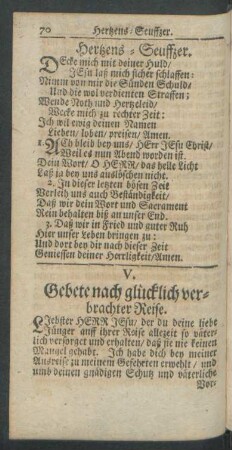 70 Hertzens-Seuffzer.
Hertzens-Seuffzer.
DEcke mich mit deiner Huld/
JEsu laß mich sicher schlaffen:
Nimm von mir die Sünden Schuld/
Und die wol verdienten Straffen;
Wende Noth und Hertzeleid/
Wecke mich zu rechter Zeit:
Ich wil ewig deinen Namen
Lieben/ loben/ preisen/ Amen.
1. ACh bleib bey uns/ HErr JEsu Christ/
Weil es nun Abend worden ist.
Dein Wort/ O HERR/ das helle Licht
Laß ja bey uns auslöschen nicht.
2. In dieser letzten bösen Zeit
Verleih uns auch Beständigkeit/
Daß wir dein Wort und Sacrament
Rein behalten biß an unser End.
3. Daß wir in Fried und guter Ruh
Hier unser Leben bringen zu:
Und dort bey dir nach dieser Zeit
Geniessen deiner Herrligkeit/ Amen.
V.
Gebete nach glücklich ver-
brachter Reise.
LIebster HERR JEsu/ der du deine liebe
Jünger auff ihrer Reise allezeit so väter-
lich versorget und erhalten/ daß sie nie keinen
Mangel gehabt. Ich habe dich bey meiner
Ausreise zu meinem Gefehrten erwehlt/ und
umb deinen gnädigen Schutz und väterliche
Vor-